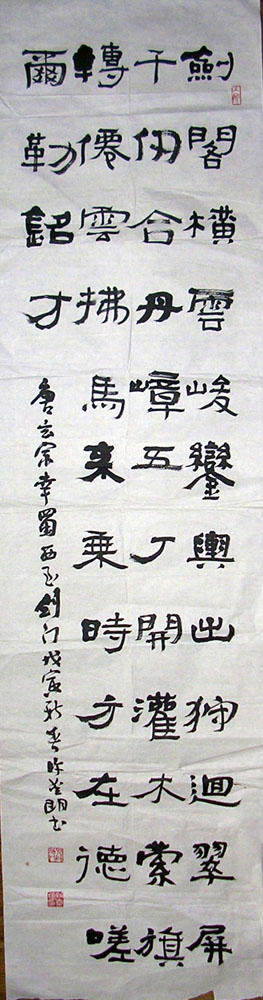 劍閣橫雲峻鑾輿出狩迴翠屏
千仞合丹嶂五丁開灌木縈旗
轉僊雲拂馬来乘時方在德嗟
爾勒銘才
唐玄宗幸蜀西至剑门戊寅新春朗书